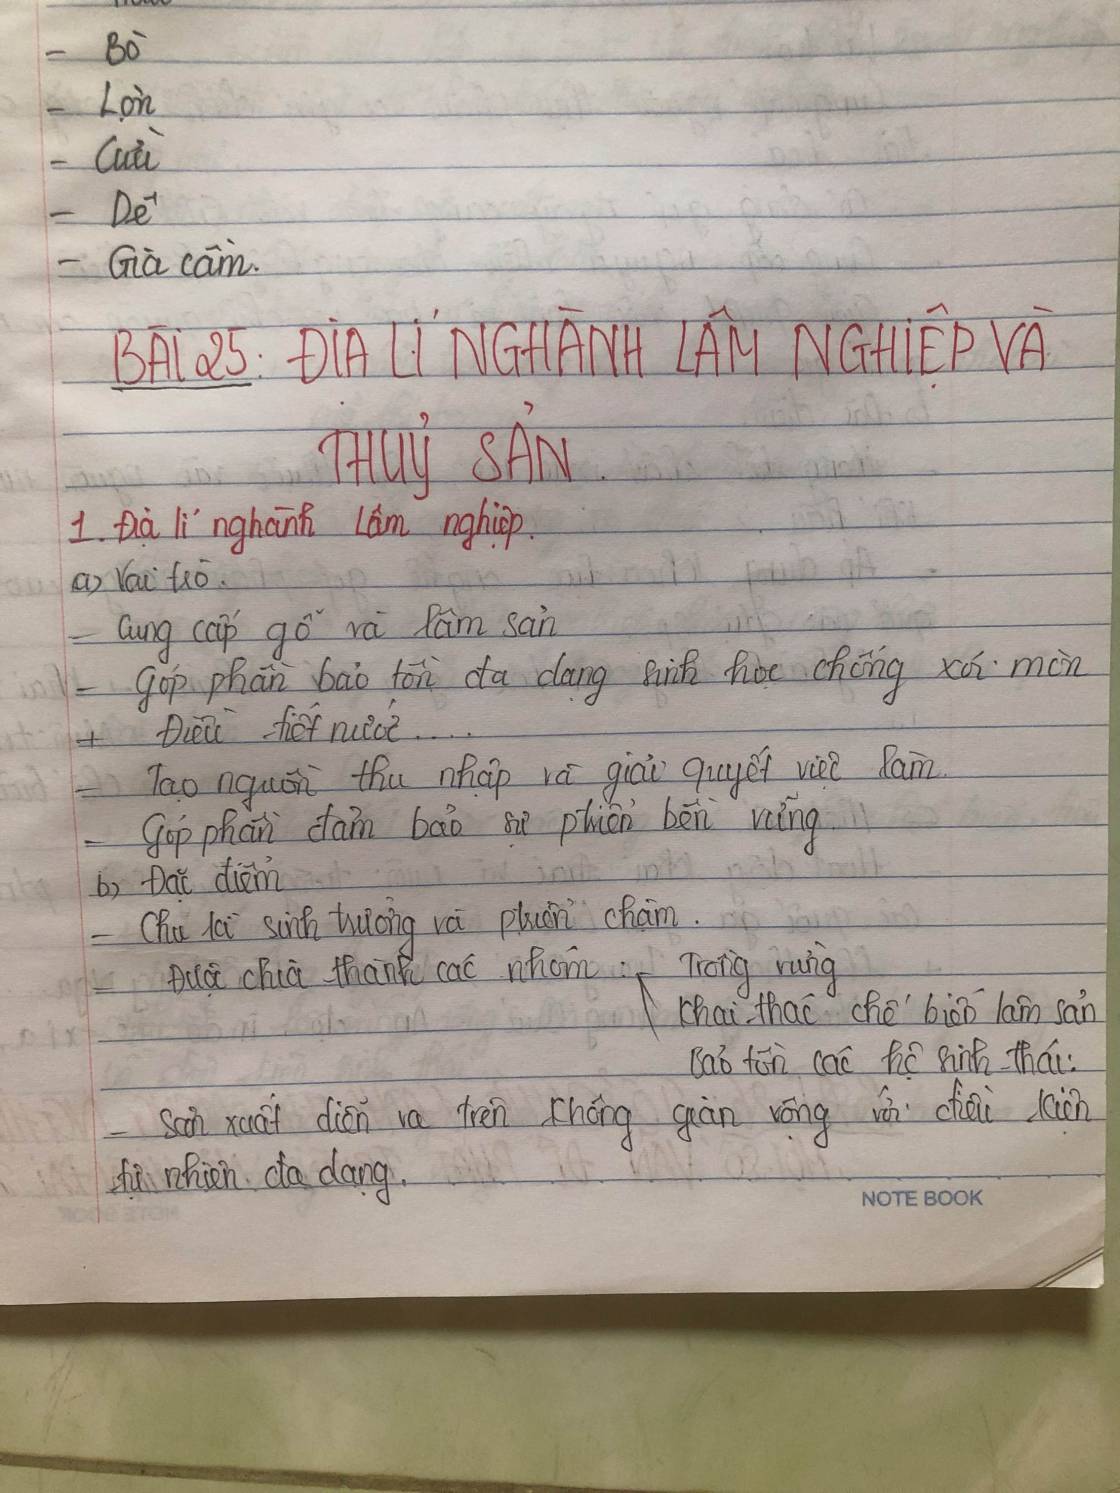 - Bò
- Lợn
- Cừu
- Dê
- Gia cầm.
BÀI 25: ĐỊA LÍ NGHÀNH LÂM NGHIỆP VÀ
THUỶ SẢN.
1. Địa lí nghành lâm nghiệp.
a) Vai trò.
- Cung cấp gỗ và lâm sản
- Góp phần bảo tồn đa dạng sinh học chống xói mòn
+ Điều tiết nước....
- Tạo nguồn thu nhập và giải quyết việc làm.
- Góp phần đảm bảo sự phiển bền vững
b) Đặc điểm
- Chu kì sinh trưởng và phiển chậm.
- Được chia thành các nhóm: - Trồng rừng
Khai thác chế biến lâm sản
Bảo tồn các hệ sinh thái:
- Sản xuất diễn ra trên không gian rộng với điều kiện
tự nhiên đa dạng.
NOTE BOOK